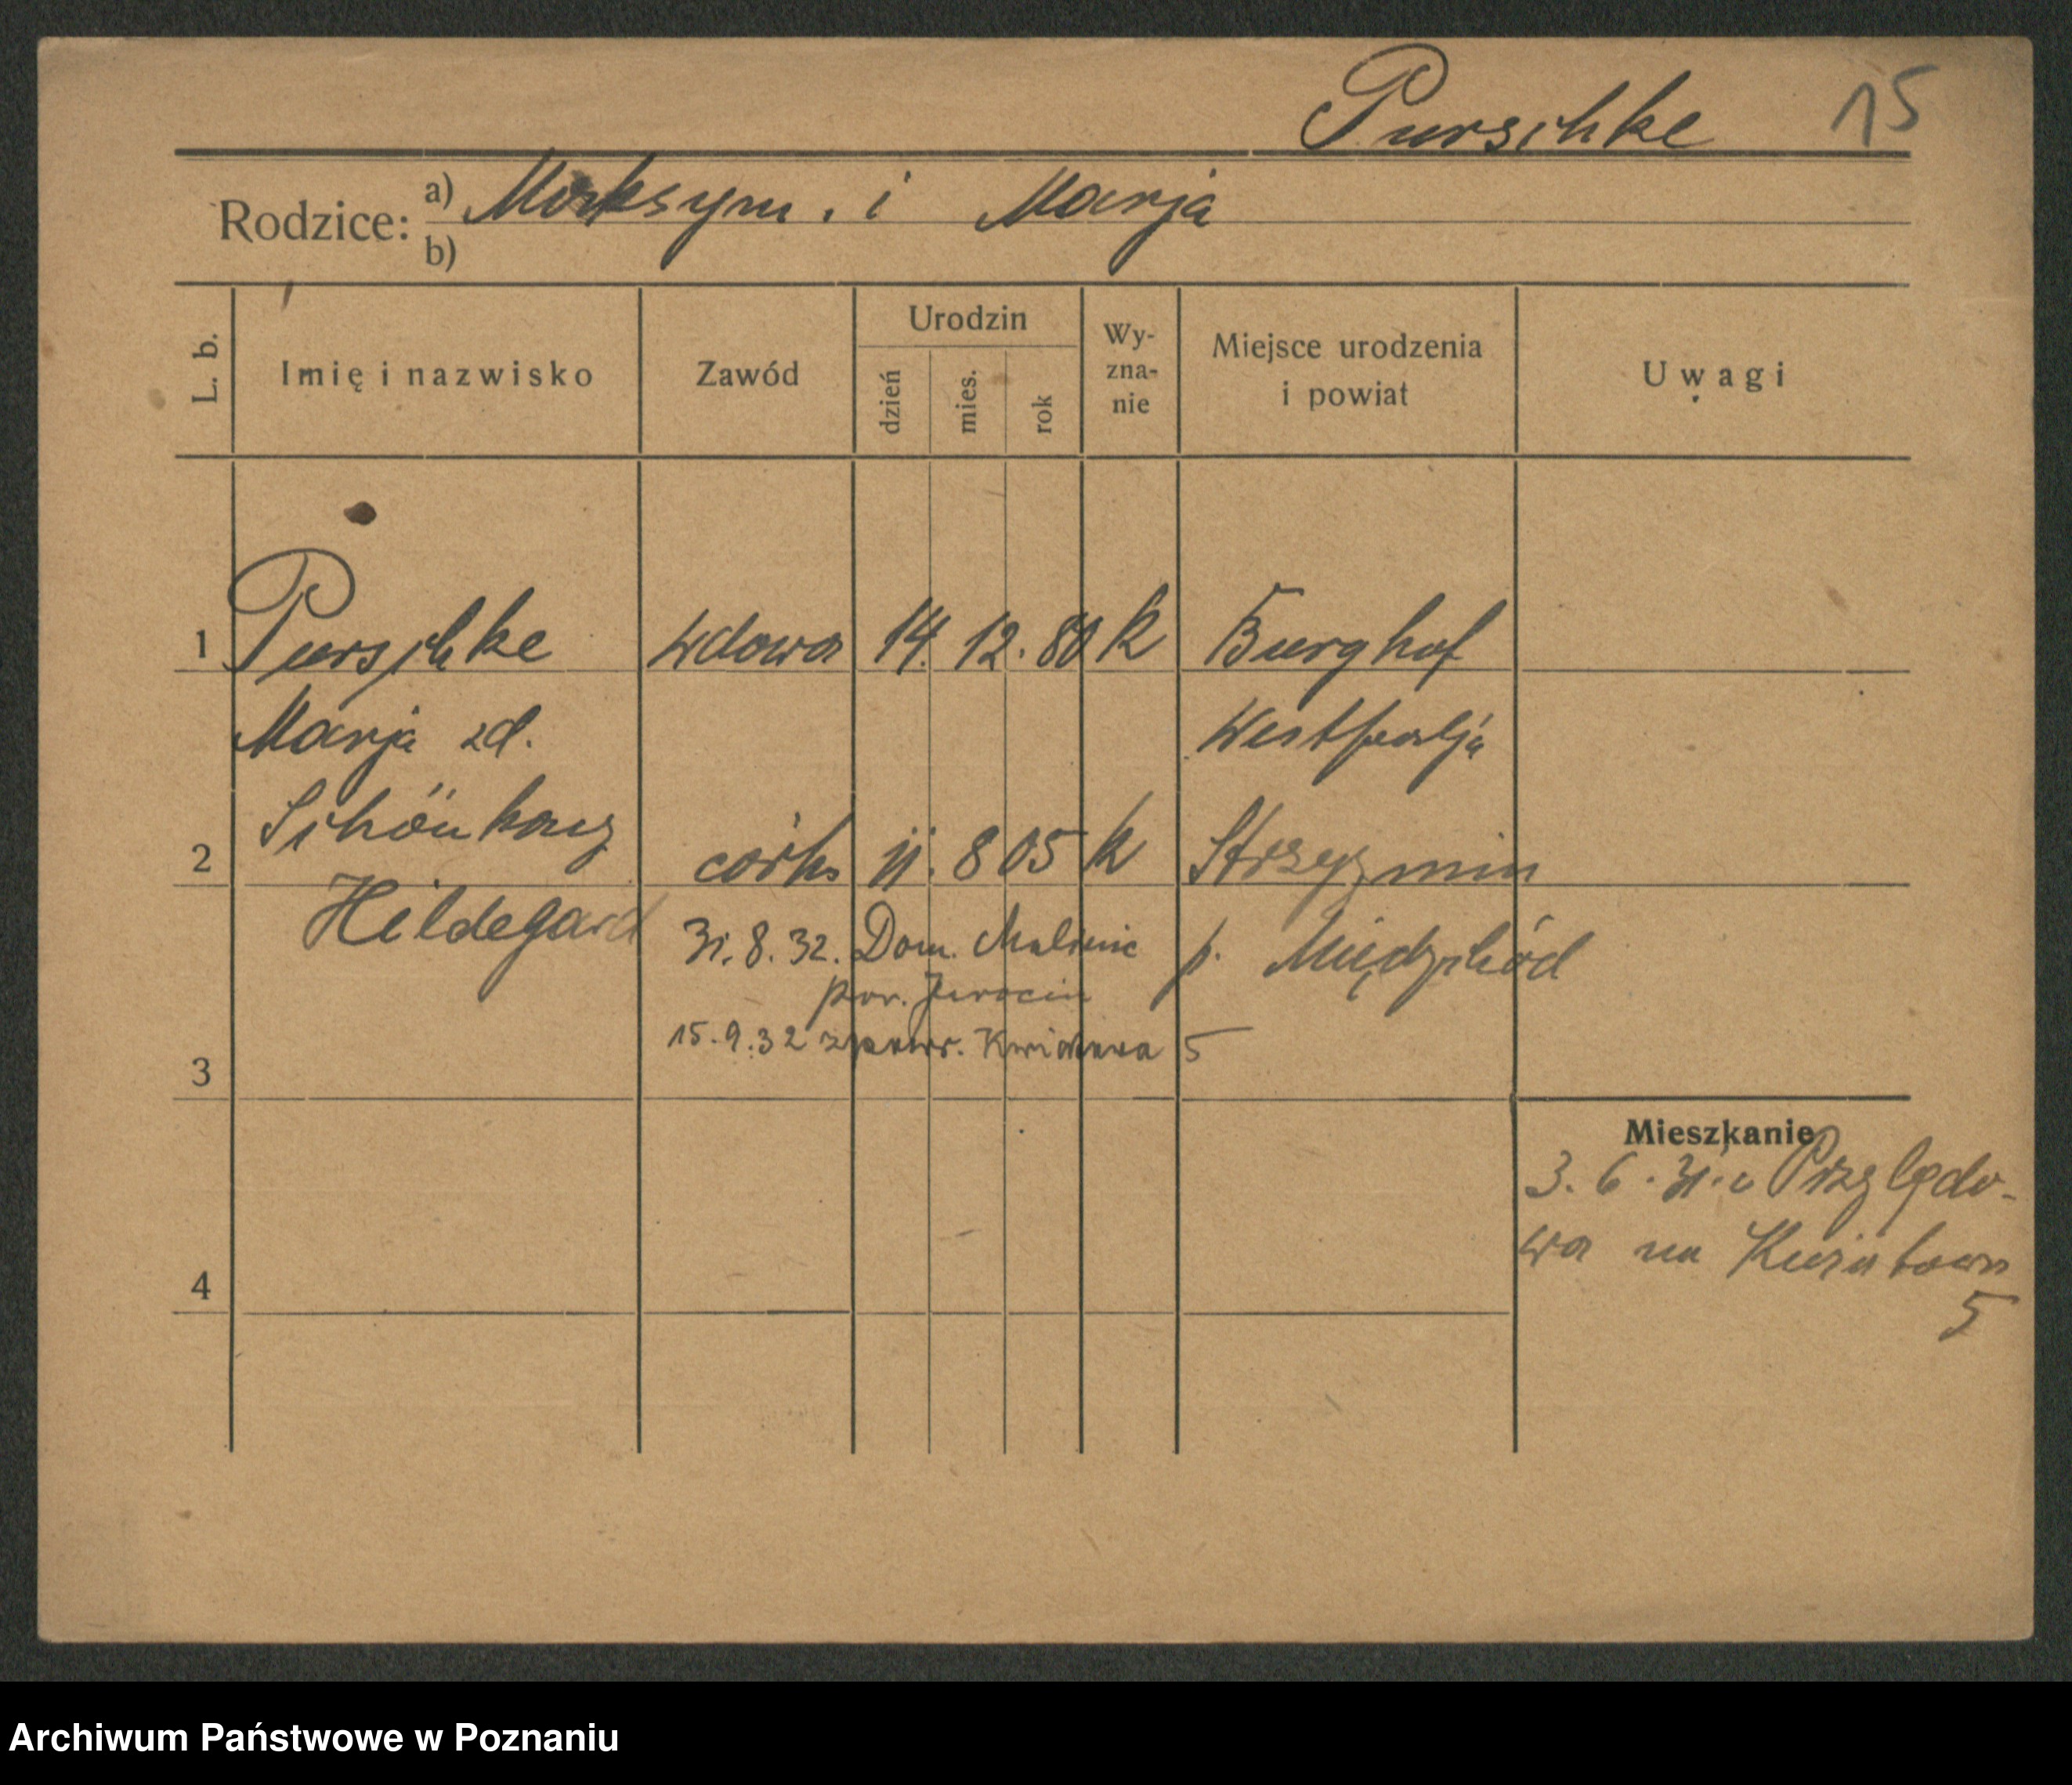 Purschke 15
Rodzice: a) Maksym. i Marja
b)
L. b. Imię i nazwisko Zawód Urodzin dzień mies. rok Wy-zna-nie Miejsce urodzenia i powiat Uwagi
1 Purschke wdowa 14. 12. 80 k Burghof
Marja zd. Westfalja
2 córka 11. 8 05 k Strzyżmin
Hildegard p. Międzychód
31. 8. 32. Dom. Malinie
pow. Jarocin
15. 9. 32 z powr. 5
3
Mieszkanie
3. 6. 31. Przylędo-
wa na Kwiatowa
5
4
Archiwum Państwowe w Poznaniu